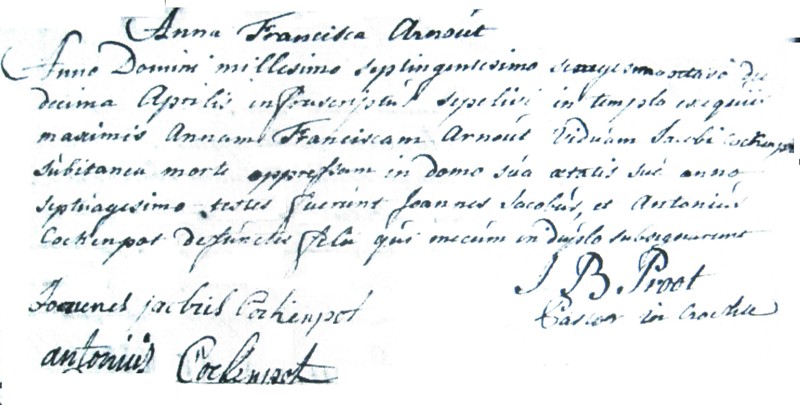 Anna Francisca Arnout
Anno Domini millesimo septingentesimo sexagesimo octavo die
decima Aprilis infrascriptus sepelivi in templo exequiis
maximis Annam Franciscam Arnout viduam Jacobi Cockenpot
subitanea morte oppressam in domo sua ætatis suæ anno
septuagesimo testes fuerunt Joannes Jacobus, et Antonius
Cockenpot defunctæ filii qui mecum in duplo subsignarunt
J B Proot
Pastor in
Joannes jacobus Cockenpot
antonius Cockenpot